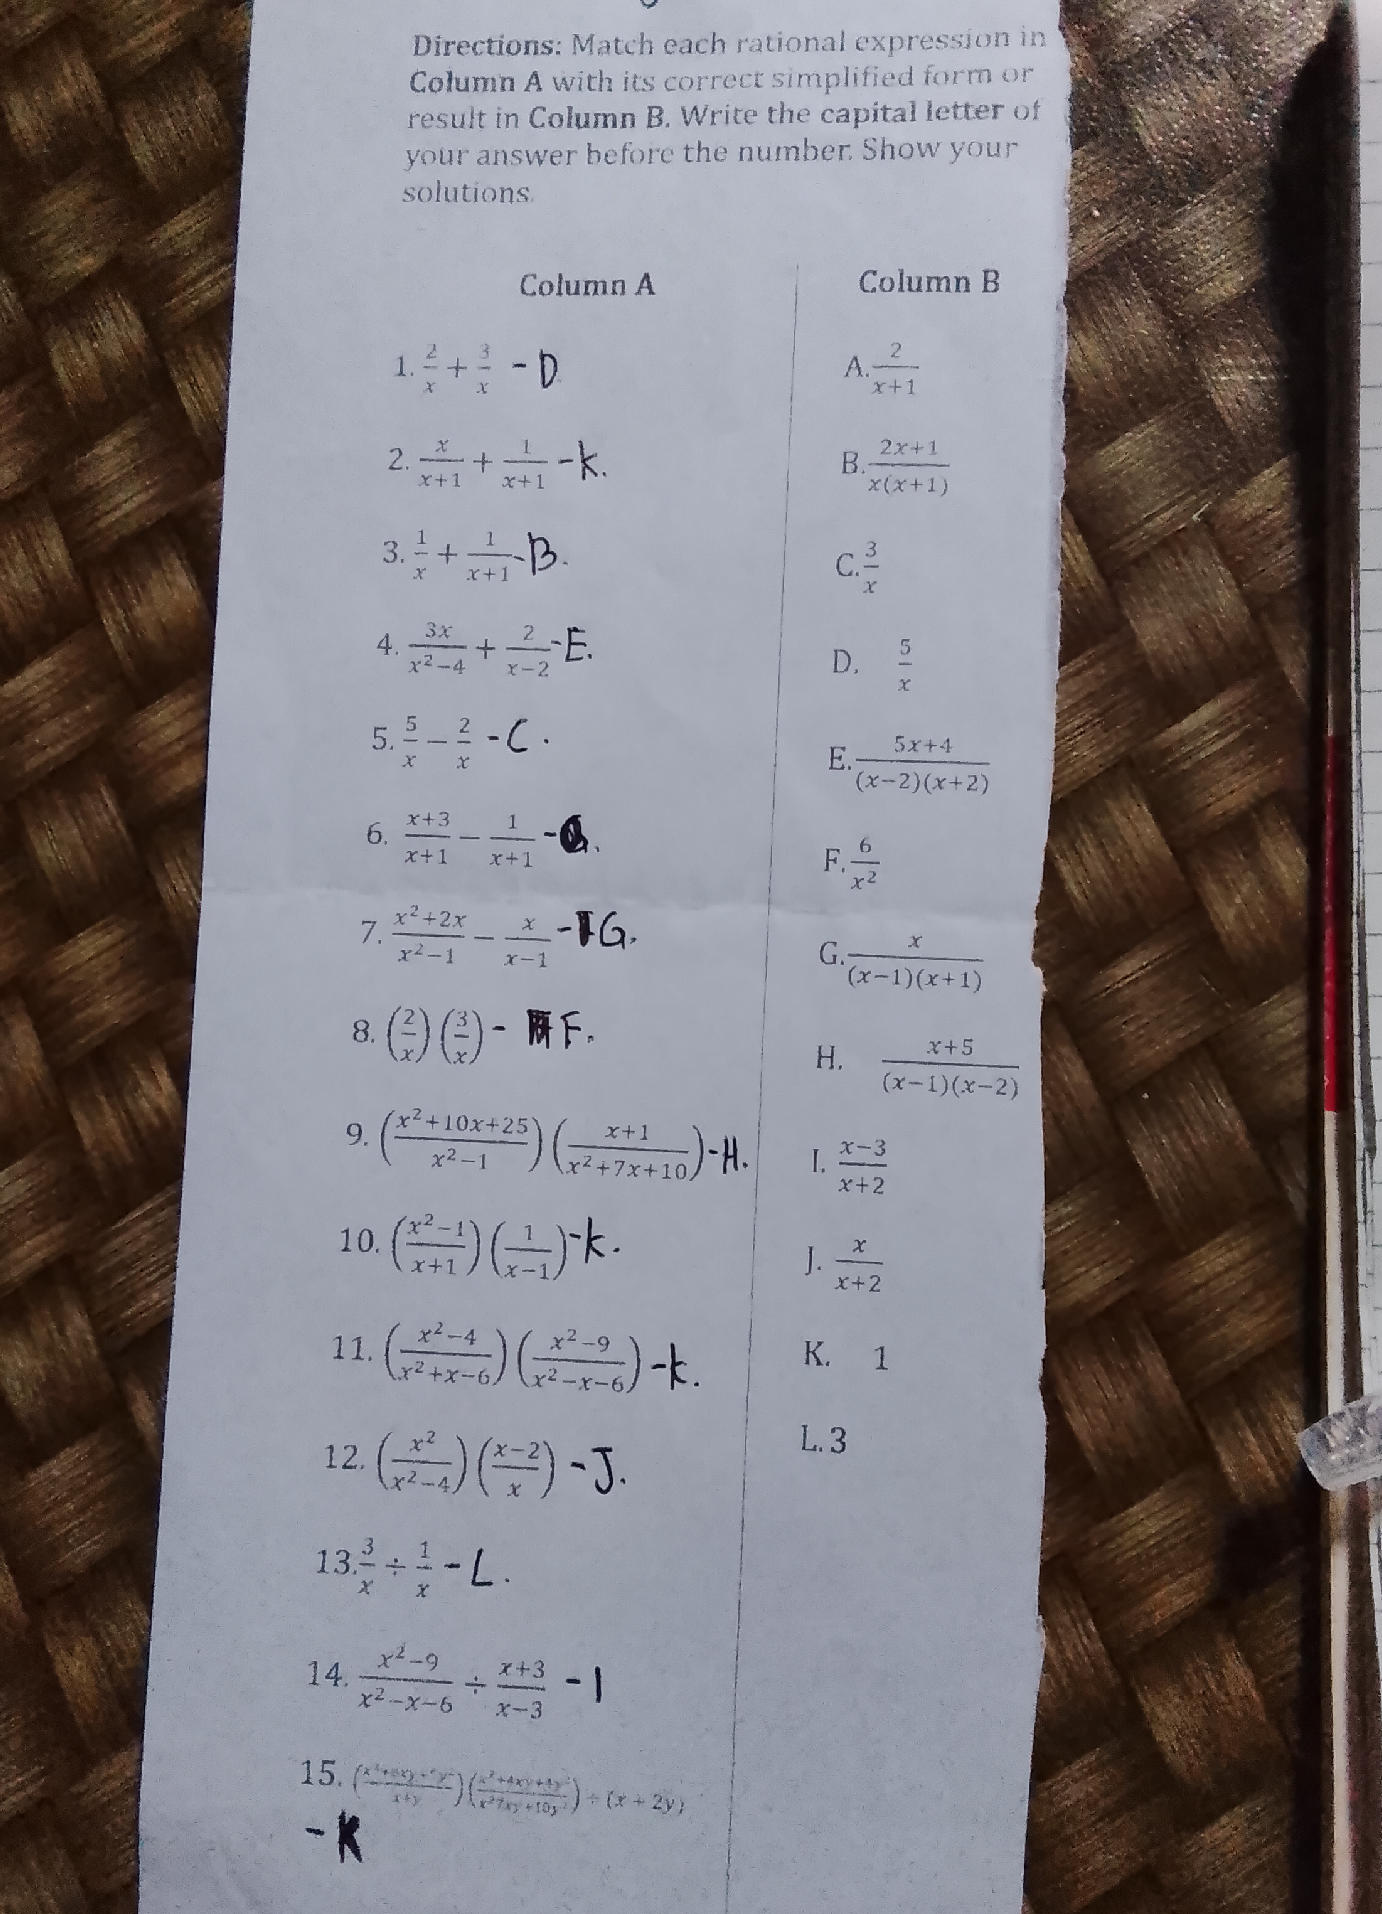 Directions: Match each rational expression in
Column A with its correct simplified form or
result in Column B. Write the capital letter of
your answer before the number. Show your
solutions.
Column A
1. 2/x + 3/x - D
2. x/(x+1) + 1/(x+1) - K.
3. 1/x + 1/(x+1) - B.
4. 3x/(x²−4) + 2/(x−2) - E.
5. 5/x − 2/x - C.
6. (x+3)/(x+1) − 1/(x+1) -
7. (x²+2x)/(x²−1) − x/(x−1) - G.
8. (2/x)(3/x) - F.
9. ((x²+10x+25)/(x²−1))((x+1)/(x²+7x+10)) - H.
10. ((x²−1)/(x+1))(1/(x−1)) - K.
11. ((x²−4)/(x²+x−6))((x²−9)/(x²−x−6)) - K.
12. (x²/(x²−4))((x−2)/x) - J.
13. 3/x ÷ 1/x - L.
14. (x²−9)/(x²−x−6) ÷ (x+3)/(x−3) - I
15. ÷ (x + 2y)
- K
Column B
A. 2/(x+1)
B. (2x+1)/(x(x+1))
C. 3/x
D. 5/x
E. (5x+4)/((x−2)(x+2))
F. 6/x²
G. x/((x−1)(x+1))
H. (x+5)/((x−1)(x−2))
I. (x−3)/(x+2)
J. x/(x+2)
K. 1
L. 3